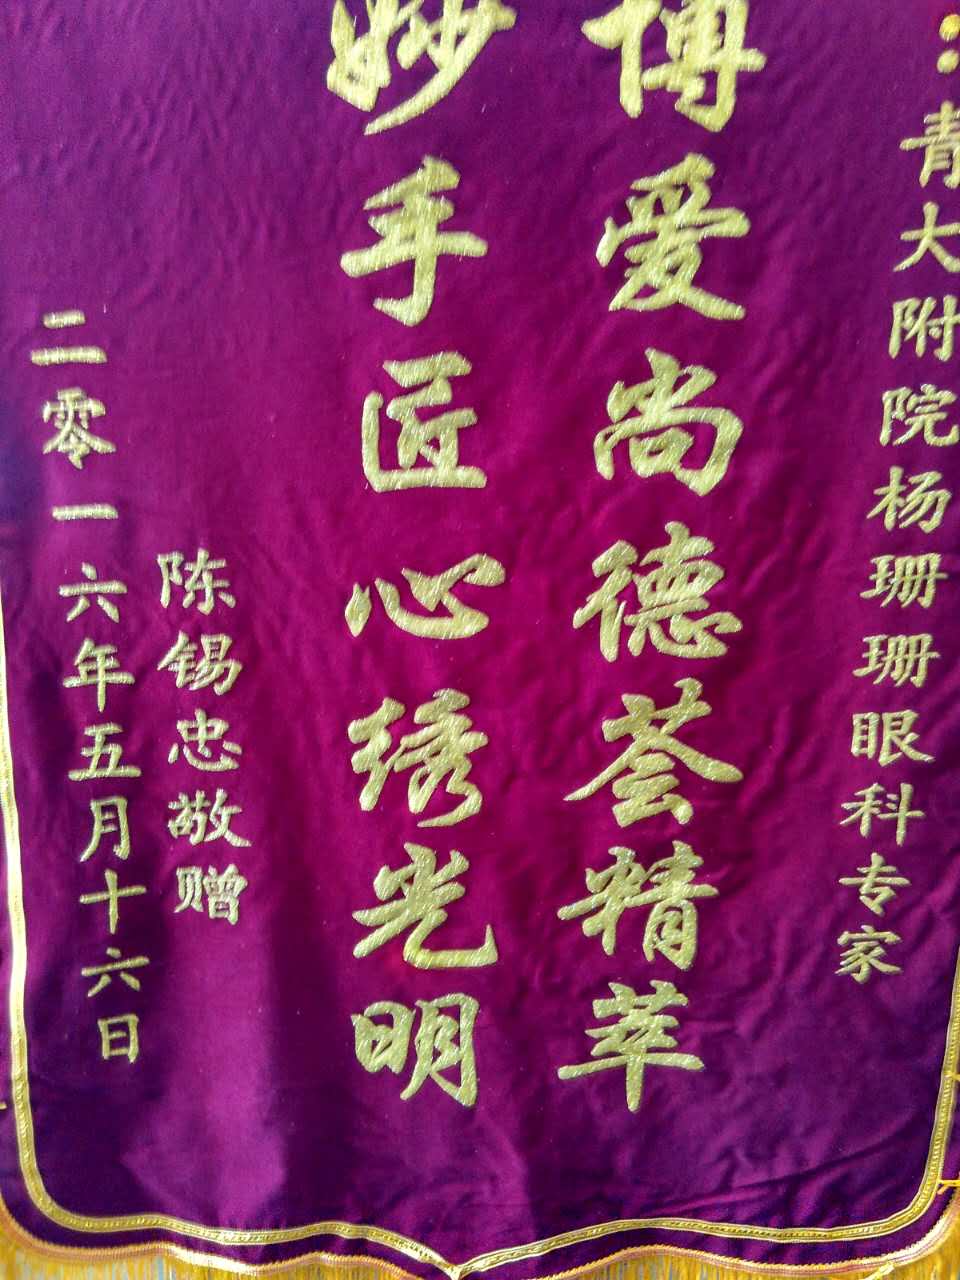 ：青大附院杨珊珊眼科专家
博爱尚德荟精萃
妙手匠心绣光明
陈锡忠敬赠
二零一六年五月十六日